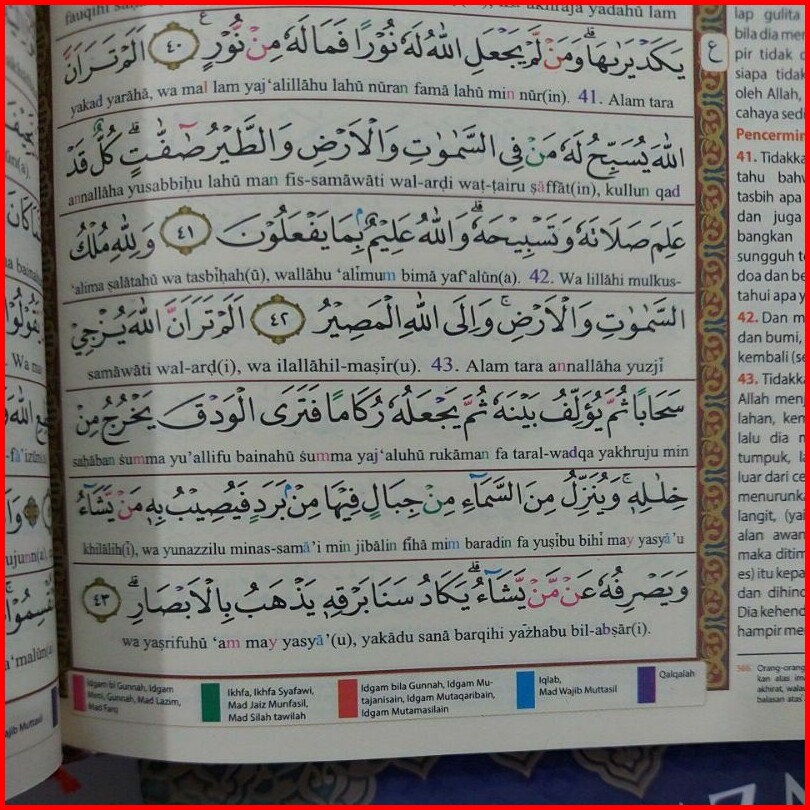 yakad yarāhā, wa mal lam yaj'alillāhu lahū nūran famā lahū min nūr(in). 41. Alam tara
اللّٰهَ يُسَبِّحُ لَهٗ مَنْ فِى السَّمٰوٰتِ وَالْاَرْضِ وَالطَّيْرُ صٰۤفّٰتٍۗ كُلٌّ قَدْ
annallāha yusabbiḥu lahū man fis-samāwāti wal-arḍi waṭ-ṭairu ṣāffāt(in), kullun qad
عَلِمَ صَلَاتَهٗ وَتَسْبِيْحَهٗۗ وَاللّٰهُ عَلِيْمٌۢ بِمَا يَفْعَلُوْنَ ٤١ وَلِلّٰهِ مُلْكُ
'alima ṣalātahū wa tasbīḥah(ū), wallāhu 'alīmum bimā yaf'alūn(a). 42. Wa lillāhi mulkus-
السَّمٰوٰتِ وَالْاَرْضِۚ وَاِلَى اللّٰهِ الْمَصِيْرُ ٤٢ اَلَمْ تَرَ اَنَّ اللّٰهَ يُزْجِيْ
samāwāti wal-arḍ(i), wa ilallāhil-maṣīr(u). 43. Alam tara annallāha yuzjī
سَحَابًا ثُمَّ يُؤَلِّفُ بَيْنَهٗ ثُمَّ يَجْعَلُهٗ رُكَامًا فَتَرَى الْوَدْقَ يَخْرُجُ مِنْ
saḥāban ṡumma yu'allifu bainahū ṡumma yaj'aluhū rukāman fa taral-wadqa yakhruju min
خِلٰلِهٖۚ وَيُنَزِّلُ مِنَ السَّمَاۤءِ مِنْ جِبَالٍ فِيْهَا مِنْۢ بَرَدٍ فَيُصِيْبُ بِهٖ مَنْ يَّشَاۤءُ
khilālih(ī), wa yunazzilu minas-samā'i min jibālin fīhā mim baradin fa yuṣību bihī may yasyā'u
وَيَصْرِفُهٗ عَنْ مَّنْ يَّشَاۤءُۗ يَكَادُ سَنَا بَرْقِهٖ يَذْهَبُ بِالْاَبْصَارِۗ ٤٣
wa yaṣrifuhū 'am may yasyā'(u), yakādu sanā barqihī yażhabu bil-abṣār(i).
Idgam bi Gunnah, Idgam
Mimi, Gunnah, Mad Lazim,
Mad Farq
Ikhfa, Ikhfa Syafawi,
Mad Jaiz Munfasil,
Mad Silah tawilah
Idgam bila Gunnah, Idgam Mu-
tajanisain, Idgam Mutaqaribain,
Idgam Mutamasilain
Iqlab,
Mad Wajib Muttasil
Qalqalah
lap gulita
bila dia
pir tidak
siapa tidak
oleh Allah,
cahaya
41. Tidakka
tahu
tasbih apa
dan juga
bangkan
sungguh
doa dan
tahui apa y
42. Dan
dan bumi,
kembali
43. Tidakk
Allah
lahan,
lalu dia
tumpuk,
luar dari
langit,
alan awan
maka
es) itu
dan
Dia
566 Orang-orang
kan atas
akhirat,
balasan atas